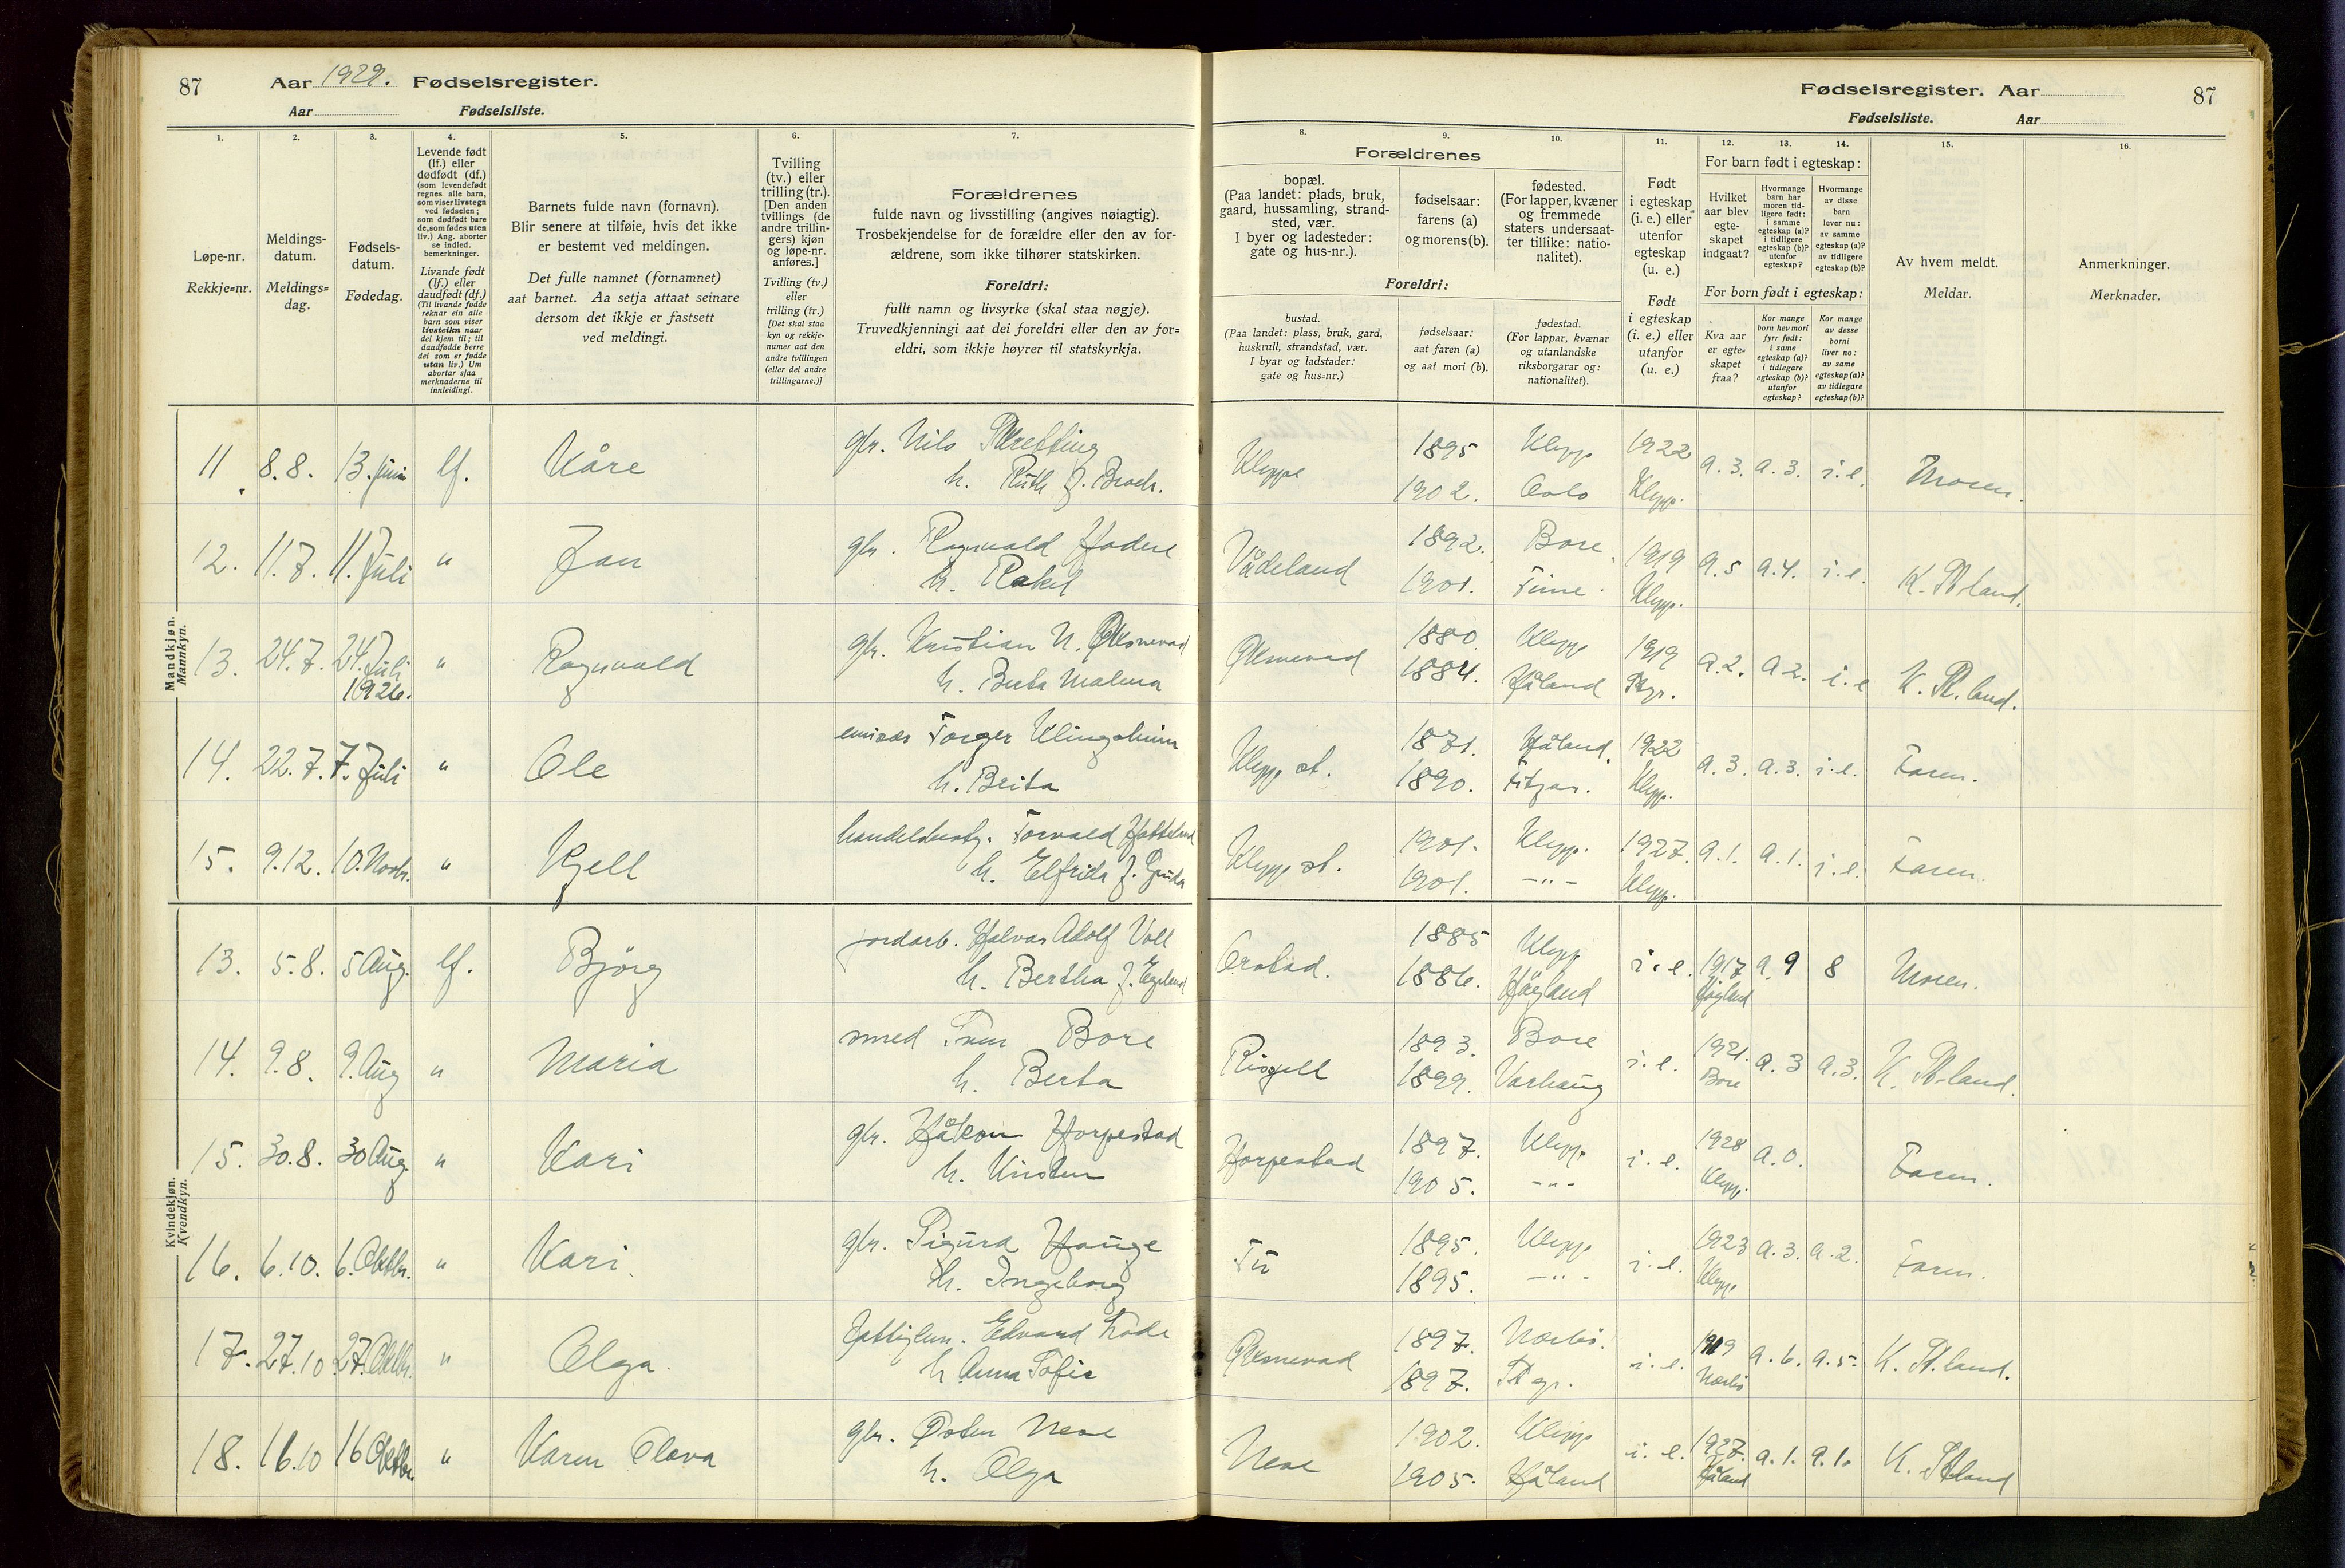 87
Aar 1929. Fødselsregister.
Aar Fødselsliste.
1.
2.
3.
4.
5.
6.
7.
Løpe-nr.
Rekkje=nr.
Meldings-
datum.
Meldings=
dag.
Fødsels-
datum.
Fødedag.
Levende født
(lf.) eller
dødfødt (df.)
(som levendefødt
regnes alle barn,
som viser livstegn
ved fødselen;
som dødfødt bare
de, som fødes uten
liv.) Ang. aborter
se indled.
bemerkninger.
Livande født
(lf.) eller
daudfødt (df.)
(Til livande fødde
reknar ein alle
barn som viser
livsteikn naar
dei kjem til; til
daudfødde berre
dei som er fødde
utan liv.) Um
abortar sjaa
merknaderne til
innleidingi.
Barnets fulde navn (fornavn).
Blir senere at tilføie, hvis det ikke
er bestemt ved meldingen.
Det fulle namnet (fornamnet)
aat barnet. Aa setja attaat seinare
dersom det ikkje er fastsett
ved meldingi.
Tvilling
(tv.) eller
trilling (tr.).
[Den anden
tvillings (de
andre trillin-
gers) kjøn
og løpe-nr.
anføres.]
Tvilling (tv.)
eller
trilling (tr.)
[Det skal staa
kyn og rekkje-
numer aat den
andre tvillingen
(eller dei andre
trillingarne.)]
Forældrenes
fulde navn og livsstilling (angives nøiagtig).
Trosbekjendelse for de forældre eller den av for-
ældrene, som ikke tilhører statskirken.
Foreldri:
fullt namn og livsyrke (skal staa nøgje).
Truvedkjenningi aat dei foreldri eller den av for=
eldri, som ikkje høyrer til statskyrkja.
Mandkjøn.
Mannkyn.
11 8.8. 13. Juni lf. Kåre gbr. Nils Skretting
h. Ruth f. Broch.
12. 11.7. 11. Juli " Jan gbr. Ragnvald Hodne
h. Rakel
13. 24.7. 24. Juli 1926. " Ragnvald gbr. Kristian N. Øksnevad
h. Berta Malena
14. 22.7. 7. Juli " Ole emissær Torger Klingsheim
h. Berta
15. 9.12. 10. Novbr. " Kjell Torvald Hatteland
h. Elfrida f. Gruda
Kvindekjøn.
Kvendkyn.
13. 5.8. 5 Aug. lf. Bjørg jordarb. Halvar Adolf Voll
h. Bertha f. Egeland
14. 9.8. 9. Aug " Maria smed Sven Bore
h. Berta
15. 30.8. 30 Aug. " Kari gbr. Håkon Horpestad
h. Kirsten
16. 6.10. 6. Oktbr. " Kari. gbr. Sigurd Hauge
h. Ingeborg
17. 27.10 27. Oktbr. " Olga. Edvard
h Anna Sofie
18. 16.10 16 Oktbr. " Karen Olava gbr. Østen Nese
h. Olga
Fødselsregister. Aar
87
Fødselsliste. Aar
8.
9.
10.
11.
12.
13.
14.
15.
16.
Forældrenes
bopæl.
(Paa landet: plads, bruk,
gaard, hussamling, strand-
sted, vær.
I byer og ladesteder:
gate og hus-nr.).
fødselsaar:
farens (a)
og morens (b).
fødested.
(For lapper, kvæner
og fremmede
staters undersaat-
ter tillike: natio-
nalitet).
Foreldri:
bustad.
(Paa landet: plass, bruk, gard,
huskrull, strandstad, vær.
I byar og ladstader:
gate og hus=nr.)
fødselsaar:
aat faren (a)
og aat mori (b).
fødestad.
(For lappar, kvænar
og utanlandske
riksborgarar og:
nationalitet).
Født
i egteskap
(i. e.) eller
utenfor
egteskap
(u. e.)
Født
i egteskap
(i. e.) eller
utanfor
(u. e.)
For barn født i egteskap:
Hvilket
aar blev
egte-
skapet
indgaat?
Hvormange
barn har
moren tid-
ligere født:
i samme
egteskap (a)?
i tidligere
egteskap (b)?
utenfor
egteskap?
Hvormange
av disse
barn
lever nu:
av samme
egteskap (a)?
av tidligere
egteskap (b)?
For born født i egteskap:
Kva aar
er egte=
skapet
fraa?
Kor mange
born hev mori
fyrr født:
i same
egteskap (a)?
i tidlegare
egteskap (b)?
utanfor
egteskap?
Kor mange
av desse
borni
liver no:
av same
egteskap (a)?
av tidlegare
egteskap (b)?
Av hvem meldt.
Meldar.
Anmerkninger.
Merknader.
Kleppe 1895 Klepp 1922 a. 3. a. 3. i. e. Moren.
1902. Oslo Klepp.
Vådeland 1892. Bore. 1919 a. 5 a. 4. i. e. K. St.land.
1901. Time. Klepp.
Øksnevad 1880. Klepp 1919 a. 2. a 2. i. e K. St. land.
1884. Håland Stgr.
Klepp st. 1871. Håland. 1922 a. 3. a. 3. i. e. Faren.
1890. Fitjar. Klepp.
Klepp st. 1901. Klepp. 1927. a. 1. a. 1. i. e. Faren.
1901. -"- Klepp.
Orstad. 1885 Klepp i. e. 1917 a. 9 8 Moren.
1886. Høgland Høgland
1893. Bore i. e. 1921. a. 3 a. 3. K. St.land.
1899. Varhaug Bore
Horpestad 1897. Klepp i. e. 1928 a. 0. Faren.
1905. -"- Klepp.
Tu 1895. Klepp i. e. 1923 a. 3. a. 2. Faren.
1895. -"- Klepp
Øksnevad 1897. Nærbø. i. e. 1919 a. 6. a. 5. K. St.land.
1897. Stgr. Nærbø
Nese 1902. Klepp i. e. 1927. a. 1. a. 1. K. Stland
1905. Håland Håland